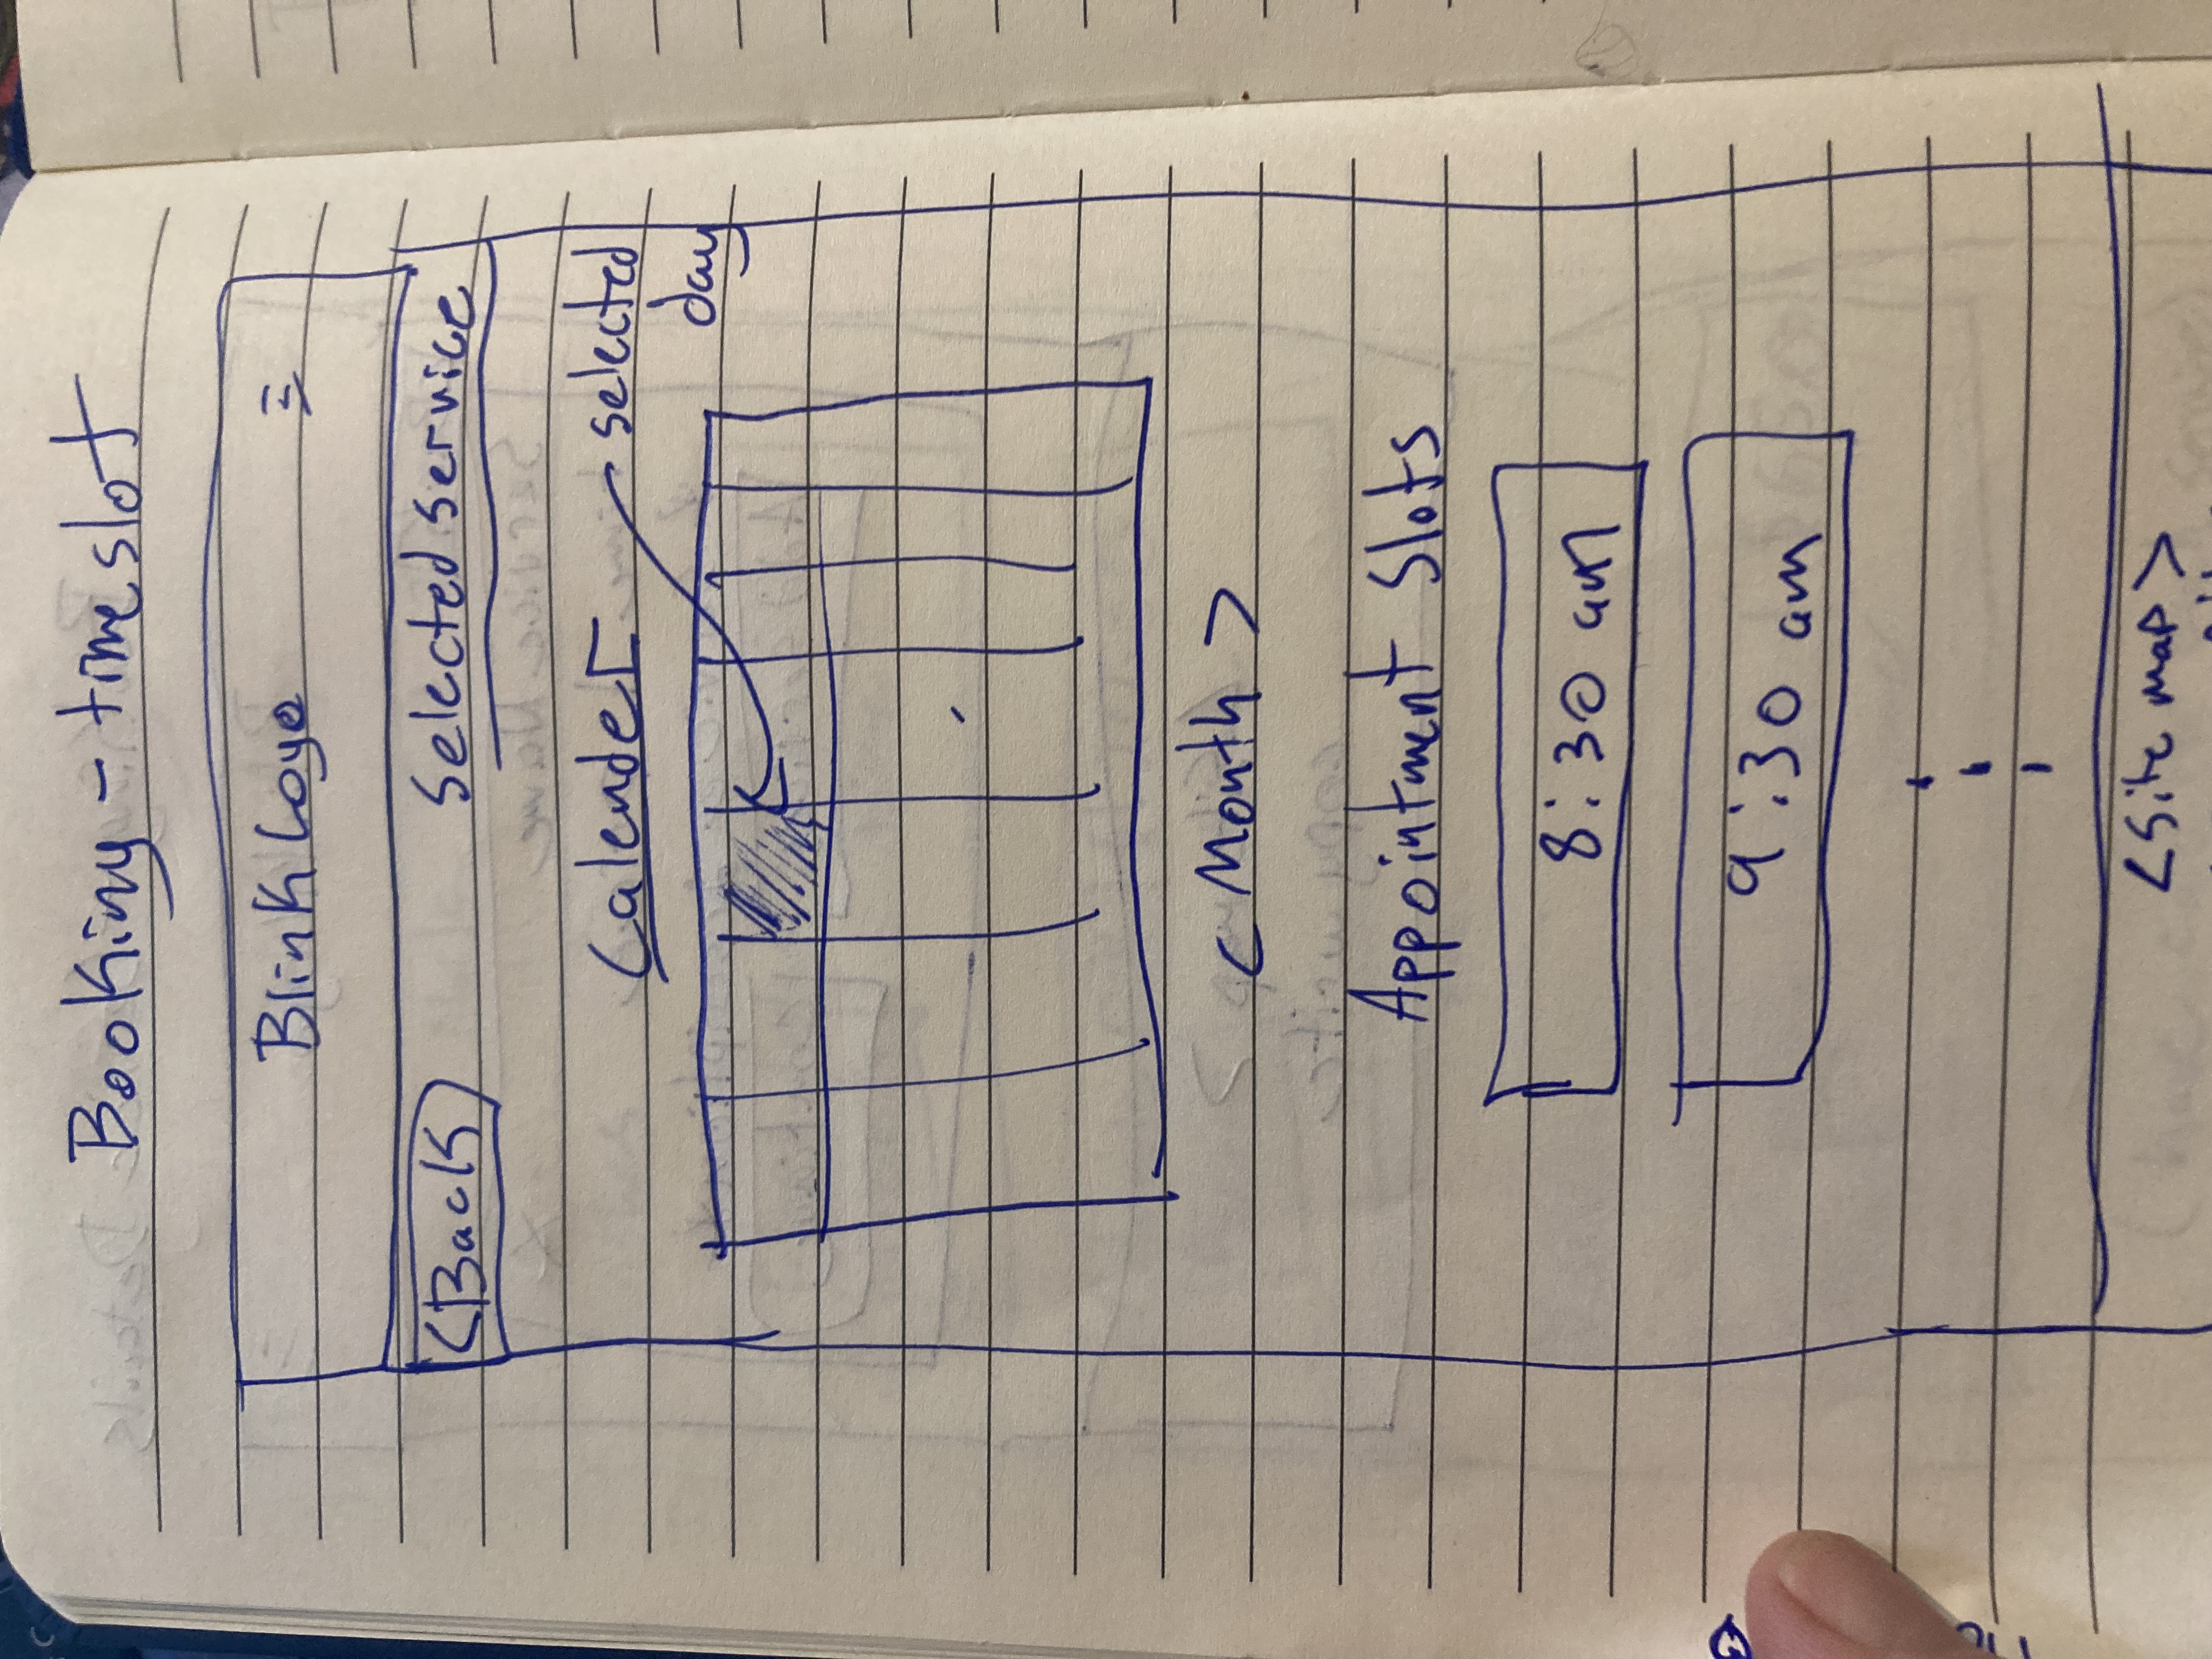 Booking - time slot
Blink Logo
<Back
Selected service
Calender
selected
day
< Month >
Appointment Slots
8:30 am
9:30 am
<Site map>